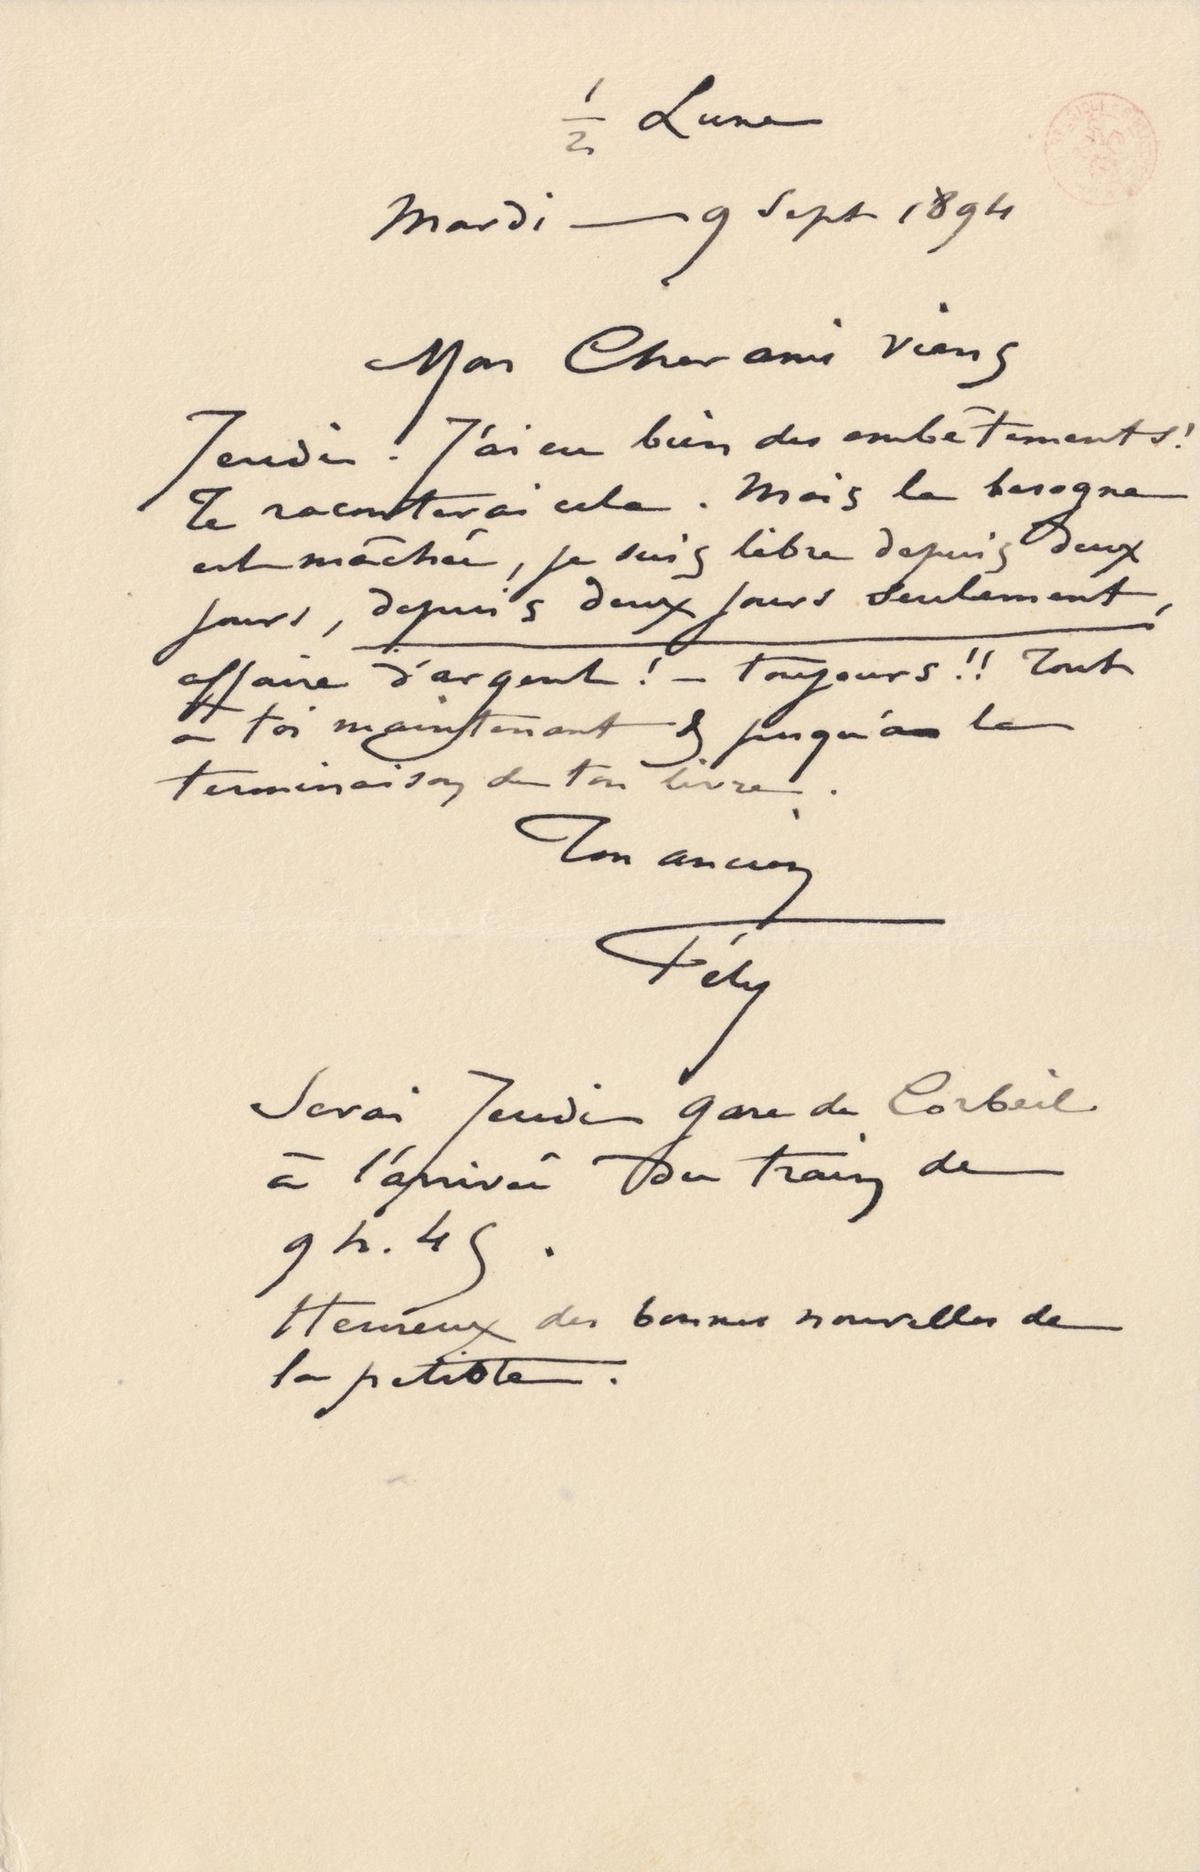 1/2 Lune
Mardi — 9 Sept 1894
Mon Cher ami viens
Jeudi ! J'ai eu bien des embêtements !
Te raconterai cela . Mais la besogne
est mâchée, je suis libre depuis deux
jours, depuis deux jours seulement,
affaire d'argent ! — toujours !! Tout
à toi maintenant & jusqu'à la
terminaison de ton livre .
Ton ancien
Fély
Serai Jeudi gare de Corbeil
à l'arrivée du train de
9 h. 45 .
Heureux des bonnes nouvelles de
la petiote .